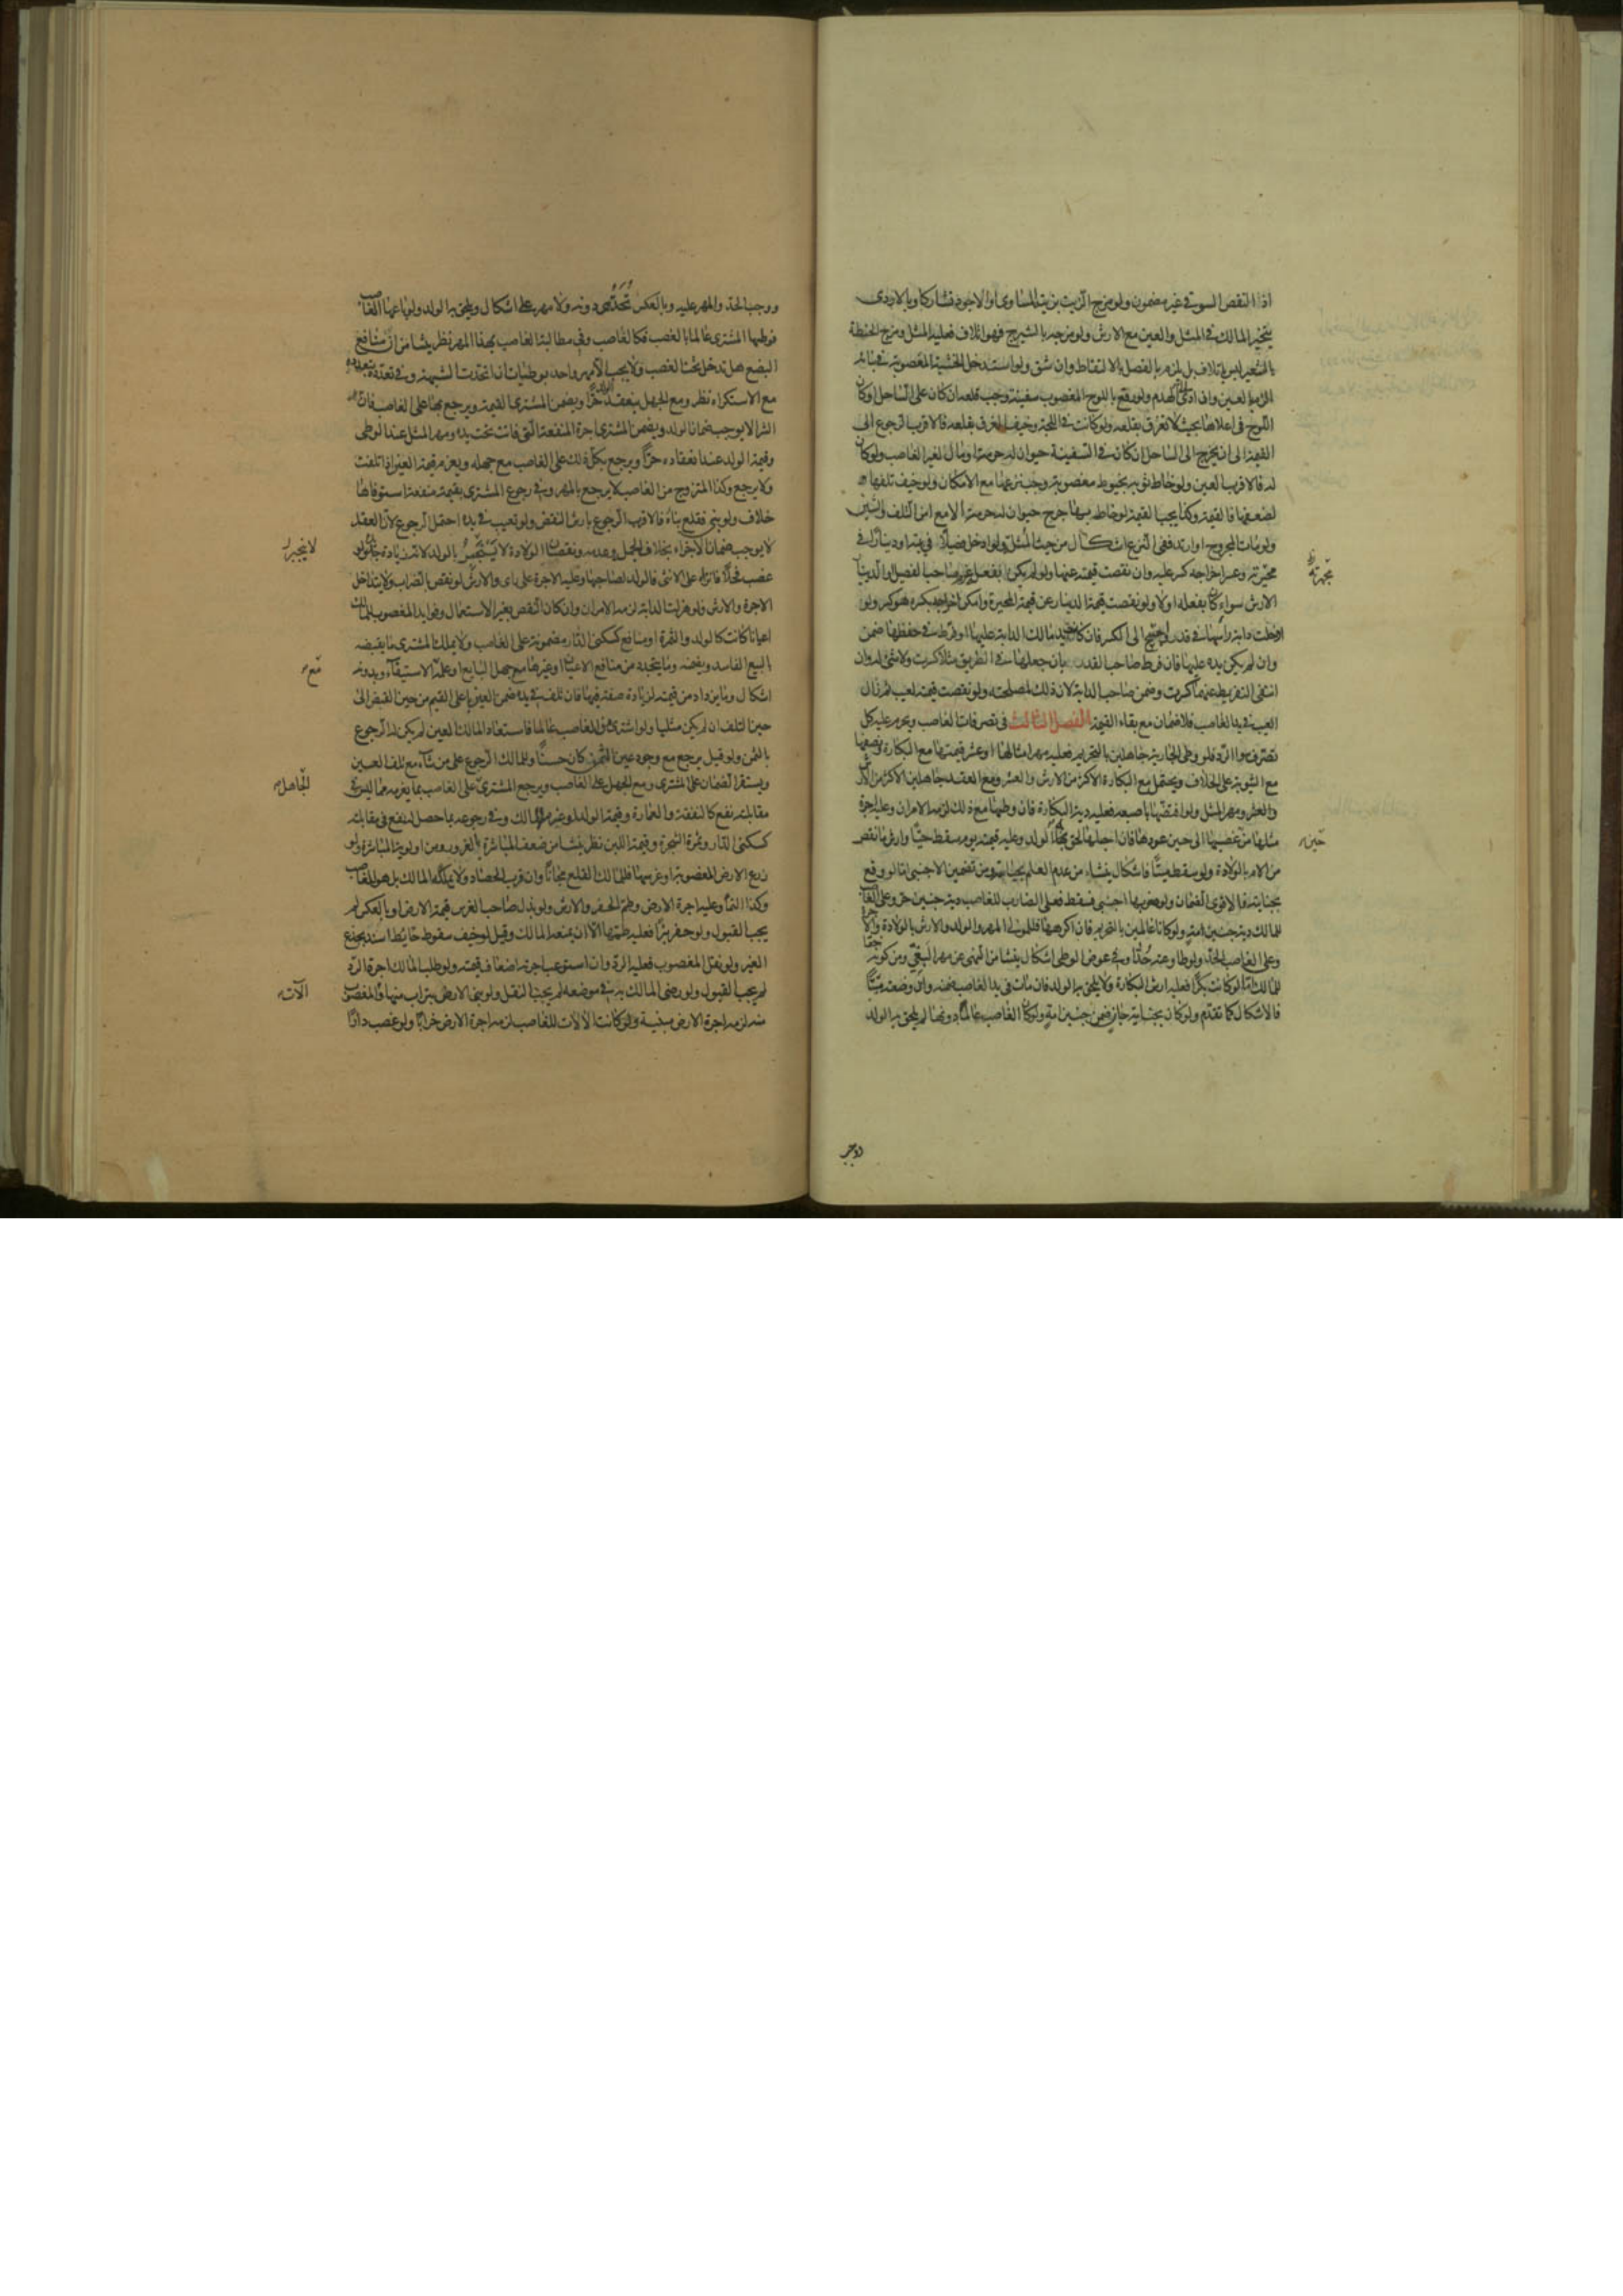 اذا النقص السوقى غير مضمون ولو مزج الزيت بزيته المساوى او الاجود تشاركا وبالاردى
يتخير المالك فى المثل والعين مع الارش ولو مزجه بالشيرج فهو اتلاف فعليه المثل ومزج الحنطة
بالشعير ليس باتلاف بل يلزم بالفصل بالالتقاط وان شق ولو استدخل الخشبة المغصوبة فى بنائه
الزم بالعين وان ادى الى الهدم ولو رقع باللوح المغصوب سفينة وجب قلعه ان كان على الساحل او كان
اللوح فى اعلاها بحيث لا تغرق بقلعه ولو كانت فى اللجة وخيف الغرق بقلعه فالاقرب الرجوع الى
القيمة الى ان يخرج الى الساحل ان كان فى السفينة حيوان له حرمة او مال لغير الغاصب ولو كان
له فالاقرب العين ولو خاط ثوبه بخيوط مغصوبة وجب نزعها مع الامكان ولو خيف تلفها
لضعفها فالقيمة وكذا يجب القيمة لو خاط بها جرح حيوان له حرمة الا مع امن التلف والشين
ولو مات المجروح او ارتد ففى النزع اشكال من حيث المثلة ولو ادخل فصيلا فى بيته او دينارا فى
محبرته وعسر اخراجه كسر عليه وان نقصت قيمته عنها ولو لم يكن بفعله غرم صاحب الفصيل والدينار
الارش سواء كان بفعله اولا ولو نقصت قيمة الدينار عن قيمة المحبرة وامكن اخراجه بكسره هو كسر ولو
ادخلت دابة راسها فى قدر واحتيج الى الكسر فان كانت يد مالك الدابة عليها او فرط فى حفظها ضمن
وان لم يكن يده عليها فان فرط صاحب القدر بان جعلها فى الطريق مثلا كسرت ولا شئ له وان
انتفى التفريط عنهما كسرت وضمن صاحب الدابة لان ذلك لمصلحته ولو نقصت قيمته لعيب ثم زال
العيب فى يد الغاصب فلا ضمان مع بقاء القيمة الفصل الثالث فى تصرفات الغاصب ويحرم عليه كل
تصرف سوا الرد فلو وطى الجارية جاهلين بالتحريم فعليه مهر امثالها او عشر قيمتها مع البكارة ونصفها
مع الثيوبة على الخلاف ويحتمل مع البكارة الاكثر من الارش والعشر ومع العقد جاهلين الاكثر من الارش
والعشر ومهر المثل ولو افتضها باصبعه فعليه دية البكارة فان وطيها مع ذلك لزمه الامران وعليه اجرة
مثلها من غصبها الى حين عودها فان احبلها لحق به الولد وعليه قيمته يوم سقط حيا وارش ما نقص
من الام بالولادة ولو سقط ميتا فاشكال ينشاء من عدم العلم بحياته ومن تضمين الاجنبى اما لو وقع
بجنايته فالاقوى الضمان ولو ضربها اجنبى فسقط فعلى الضارب للغاصب دية جنين حر وعلى الغاصب
للمالك دية جنين امة ولو كانا عالمين بالتحريم فان اكرهها فللمولى المهر والولد والارش بالولادة والاجرة
وعلى الغاصب الحد ولو طاوعته حدا وفى عوض الوطى اشكال ينشا من النهى عن مهر البغى ومن كونه حقا
للمالك اما لو كانت بكرا فعليه ارش البكارة ولا يلحق به الولد فان مات فى يد الغاصب ضمنه وان وضعته ميتا
فالاشكال كما تقدم ولو كان بجناية جان ضمن جنين امة ولو كان الغاصب عالما دونها لم يلحق به الولد
محبرته
حين
ووجب
ووجب الحد والمهر عليه وبالعكس تحد هى دونه ولا مهر على اشكال ويلحق به الولد ولو باعها الغاصب
فوطيها المشترى عالما بالغصب فكالغاصب وفى مطالبة الغاصب بهذا المهر نظر ينشا من ان منافع
البضع هل تدخل تحت الغصب ولا يجب الا مهر واحد بوطيات ان اتحدت الشبهة وفى تعدده بتعدده
مع الاستكراه نظر ومع الجهل ينعقد الولد حرا ويضمن المشترى القيمة ويرجع بها على الغاصب فان
الشرا لا يوجب ضمان الولد ويضمن المشترى اجرة المنفعة التى فاتت تحت يده ومهر المثل عند الوطى
وقيمة الولد عند انعقاده حرا ويرجع بكل ذلك على الغاصب مع جهله ويغرم قيمة العين اذا تلفت
ولا يرجع وكذا المتزوج من الغاصب لا يرجع بالمهر وفى رجوع المشترى بقيمة منفعة استوفاها
خلاف ولو بنى فقلع بناه فالاقرب الرجوع بارش النقض ولو تعيب فى يده احتمل الرجوع لان العقد
لا يوجب ضمان الاجزاء بخلاف الجمل وعدمه ونقصان الولادة لا ينجبر بالولد لانه زيادة جديدة ولو
غصب فحلا فانزاه على الانثى فالولد لصاحبها وعليه الاجرة على راى والارش لو نقص بالضراب ولا يتداخل
الاجرة والارش فلو هزلت الدابة لزمه الامران وان كان النقص بغير الاستعمال وفوايد المغصوب للمالك
اعيانا كانت كالولد والثمرة او منافع كسكنى الدار مضمونة على الغاصب ولا يملك المشترى ما يقبضه
بالبيع الفاسد ويضمنه وما يتجدد من منافع الاعيان او غيرها مع جهل البايع او علمه الاستيفاء وبدونه
اشكال وما يزداد من قيمته لزيادة صفة فيها فان تلف فى يده ضمن العين باعلى القيم من حين القبض الى
حين التلف ان لم يكن مثليا ولو اشترى من الغاصب عالما فاستعاد المالك العين لم يكن له الرجوع
بالثمن ولو قيل يرجع مع وجود عين الثمن كان حسنا وللمالك الرجوع على من شاء مع تلف العين
ويستقر الضمان على المشترى ومع الجهل على الغاصب ويرجع المشترى على الغاصب بما يغرمه مما ليس فى
مقابلته نفع كالنفقة والعمارة وقيمة الولد لو غرمه المالك وفى رجوعه بما حصل له نفع فى مقابلته
كسكنى الدار وثمرة الشجرة وقيمة اللبن نظر ينشا من ضعف المباشرة بالغرور ومن اولوية المباشرة ولو
زرع الارض المغصوبة او غرسها فللمالك القلع مجانا وان قرب الحصاد ولا يملكه المالك بل هو للغاصب
وكذا النماء وعليه اجرة الارض وطم الحفر والارش ولو بذل صاحب الغرس قيمة الارض او بالعكس لم
يجب القبول ولو حفر بئرا فعليه طمها الا ان يمنعه المالك وقيل لو خيف سقوط حايط اسند بجذع
الغير ولو نقل المغصوب فعليه الرد وان استوعب اجرته اضعاف قيمته ولو طلب المالك اجرة الرد
لم يجب القبول ولو رضى المالك به فى موضعه لم يجب النقل ولو بنى الارض بتراب منها والمغصوب
منه لزمه اجرة الارض مبنية ولو كانت الالات للغاصب لزمه اجرة الارض خرابا ولو غصب دارا
لا ينجبر
مع
الجاهل
الآت